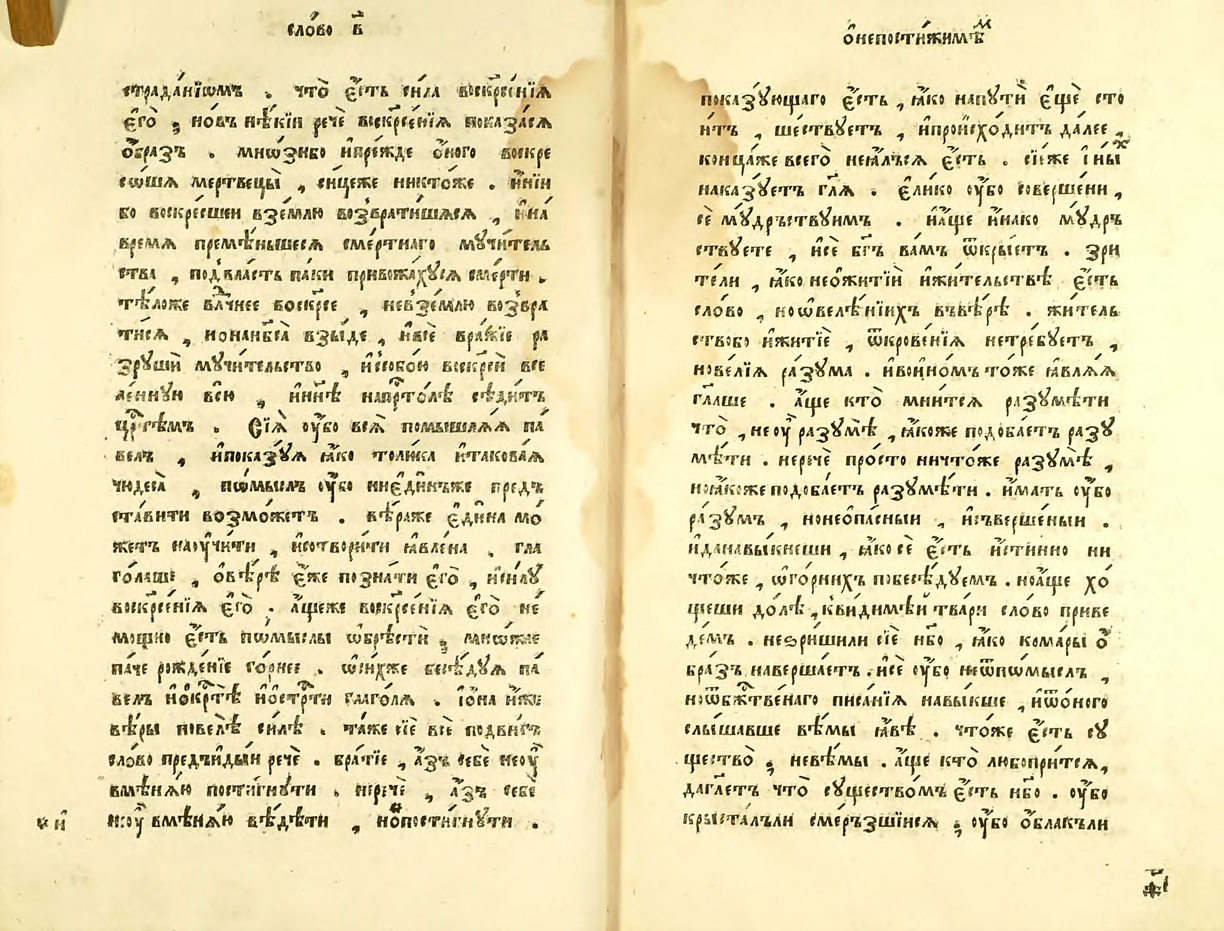 сло́во в҃
страда́нїѡмъ . что̀ є҆́сть си́ла воскресе́нїѧ
є҆го̀ , но́въ нѣ́кїи речѐ воскресе́нїѧ показа́сѧ
ѻ҆́бразъ . мно́зибо и҆пре́жде ѻ҆́ного воскре
со́шѧ мертвецы̀ , си́цеже никто́же . и҆ні́и
бо воскре́сшеи взе́млю возврати́шасѧ , и҆на̀
время премѣ́ньшесѧ сме́ртнаго мучи́тель
ства , подвла́сть па́ки привожа́хусѧ сме́рти .
тѣ́ложе влⷣчнее воскре́се , невзе́млю возвра
ти́сѧ , нонанб҃са̀ взы́де , и҆всѐ вра́жїе ра
зрушѝ мучи́тельство , и҆собо́ю воскресѝ все
ле́ннꙋю всю̀ , и҆нн҃ѣ напрⷭ҇то́лѣ сѣди́тъ
црⷭ҇тѣмъ . Сїѧ̀ ᲂу҆́бо всѧ̀ помышлѧ́ѧ па́
велъ , и҆показꙋ́ѧ ꙗ҆́ко толи́ка и҆такова́ѧ
чюдеса̀ , по́мыслъ ᲂу҆́бо ниє҆ди́нъже предъ
ста́вити возмо́жетъ . вѣ́раже є҆ди́на мо́
жетъ наꙋчи́ти , и҆сотвори́ти ꙗ҆вле́на . гла
го́лаше , ѻ҆вѣ́рѣ є҆́же позна́ти є҆го̀ , и҆си́лꙋ
воскресе́нїѧ є҆го̀ . а҆́щеже воскресе́нїѧ є҆го̀ не
мо́щно є҆́сть по́мыслы ѡ҆брѣстѝ , мно́жае
па́че рожде́нїе го́рнее . ѡ҆ни́хже бесѣ́дꙋѧ па́
велъ и҆ѻ҆крⷭ҇тѣ̀ и҆ѻ҆стрⷭ҇ти глаго́лѧ . і҆ѻ҆на̀ и҆́же
вѣ́ры повелѣ̀ си́лѣ . та́же сїѐ всѐ подви́гъ
сло́во предъи́дыи речѐ . бра́тїе , а҆́зъ себѐ неꙋ҆̀
вмѣнѧ́ю пости́гнꙋти . неречѐ , а҆́зъ себѐ
неꙋ҆̀ вмѣнѧ́ю вѣ́дѣти , но́пости́гнꙋти .
и҆
ѻ҆непости́жимѣⷨ
показꙋ́ющаго є҆́сть , ꙗ҆́ко напꙋтѝ є҆щѐ сто
и́тъ , ше́ствꙋетъ , и҆происхо́дитъ да́лее ,
конца́же всего̀ неꙗ҆́лъсѧ є҆́сть . сїѧ́же і҆ны́ⷯ
наказꙋ́етъ гл҃ѧ . є҆ли́ко ᲂу҆́бо соверше́ни ,
сѐ мꙋ́дръствꙋимъ . и҆а҆́ще и҆на́ко мꙋ́дръ
ствꙋете , и҆сѐ бг҃ъ ва́мъ ѿкры́етъ . зри́
тели , ꙗ҆́ко неѻ҆житїѝ и҆жи́тельствѣ є҆́сть
сло́во , ноѡ҆веле́нїихъ въвѣ́рѣ . жи́тель
ствобо и҆житїѐ , ѿкрове́нїѧ нетре́бꙋетъ ,
новелі́ѧ ра́зꙋма . и҆вои҆но́мъ то́же ꙗ҆влѧ́ѧ
гл҃аше . а҆́ще кто̀ мни́тсѧ разꙋмѣ́ти
что̀ , неᲂу҆̀ разꙋмѣ̀ , ꙗ҆́коже подоба́етъ разꙋ
мѣ́ти . неречѐ про́сто ничто́же разꙋмѣ̀ ,
ноꙗ҆́коже подоба́етъ разꙋмѣ́ти . и҆́мать ᲂу҆́бо
ра́зꙋмъ , нонеѻ҆па́сныи , и҆съверше́ныи .
и҆данавы́кнеши , ꙗ҆́ко сѐ є҆́сть и҆́стинно ни
что́же , ѡ҆го́рнихъ побесѣ́дꙋемъ . ноа҆́ще хо́
щеши до́лѣ , кви́димѣи тва́ри сло́во приве
де́мъ . незри́шили сїѐ нб҃о , ꙗ҆́ко кома́ры ѻ҆́
бразъ наверша́етъ . и҆сѐ ᲂу҆́бо неѿпо́мыслъ ,
ноѿбжⷭ҇твенаго писа́нїѧ навы́кше , и҆ѿѻ҆́ного
слы́шавше вѣ́мы ꙗ҆́вѣ . что́же є҆́сть сꙋ
щество̀ , невѣ́мы . а҆́ще кто̀ любопри́тсѧ ,
даглⷮетъ что̀ сꙋщество́мъ є҆́сть нб҃о . ᲂу҆́бо
крыста́лъли сме́ръзшїисѧ , ᲂу҆́бо ѻ҆́блакъли